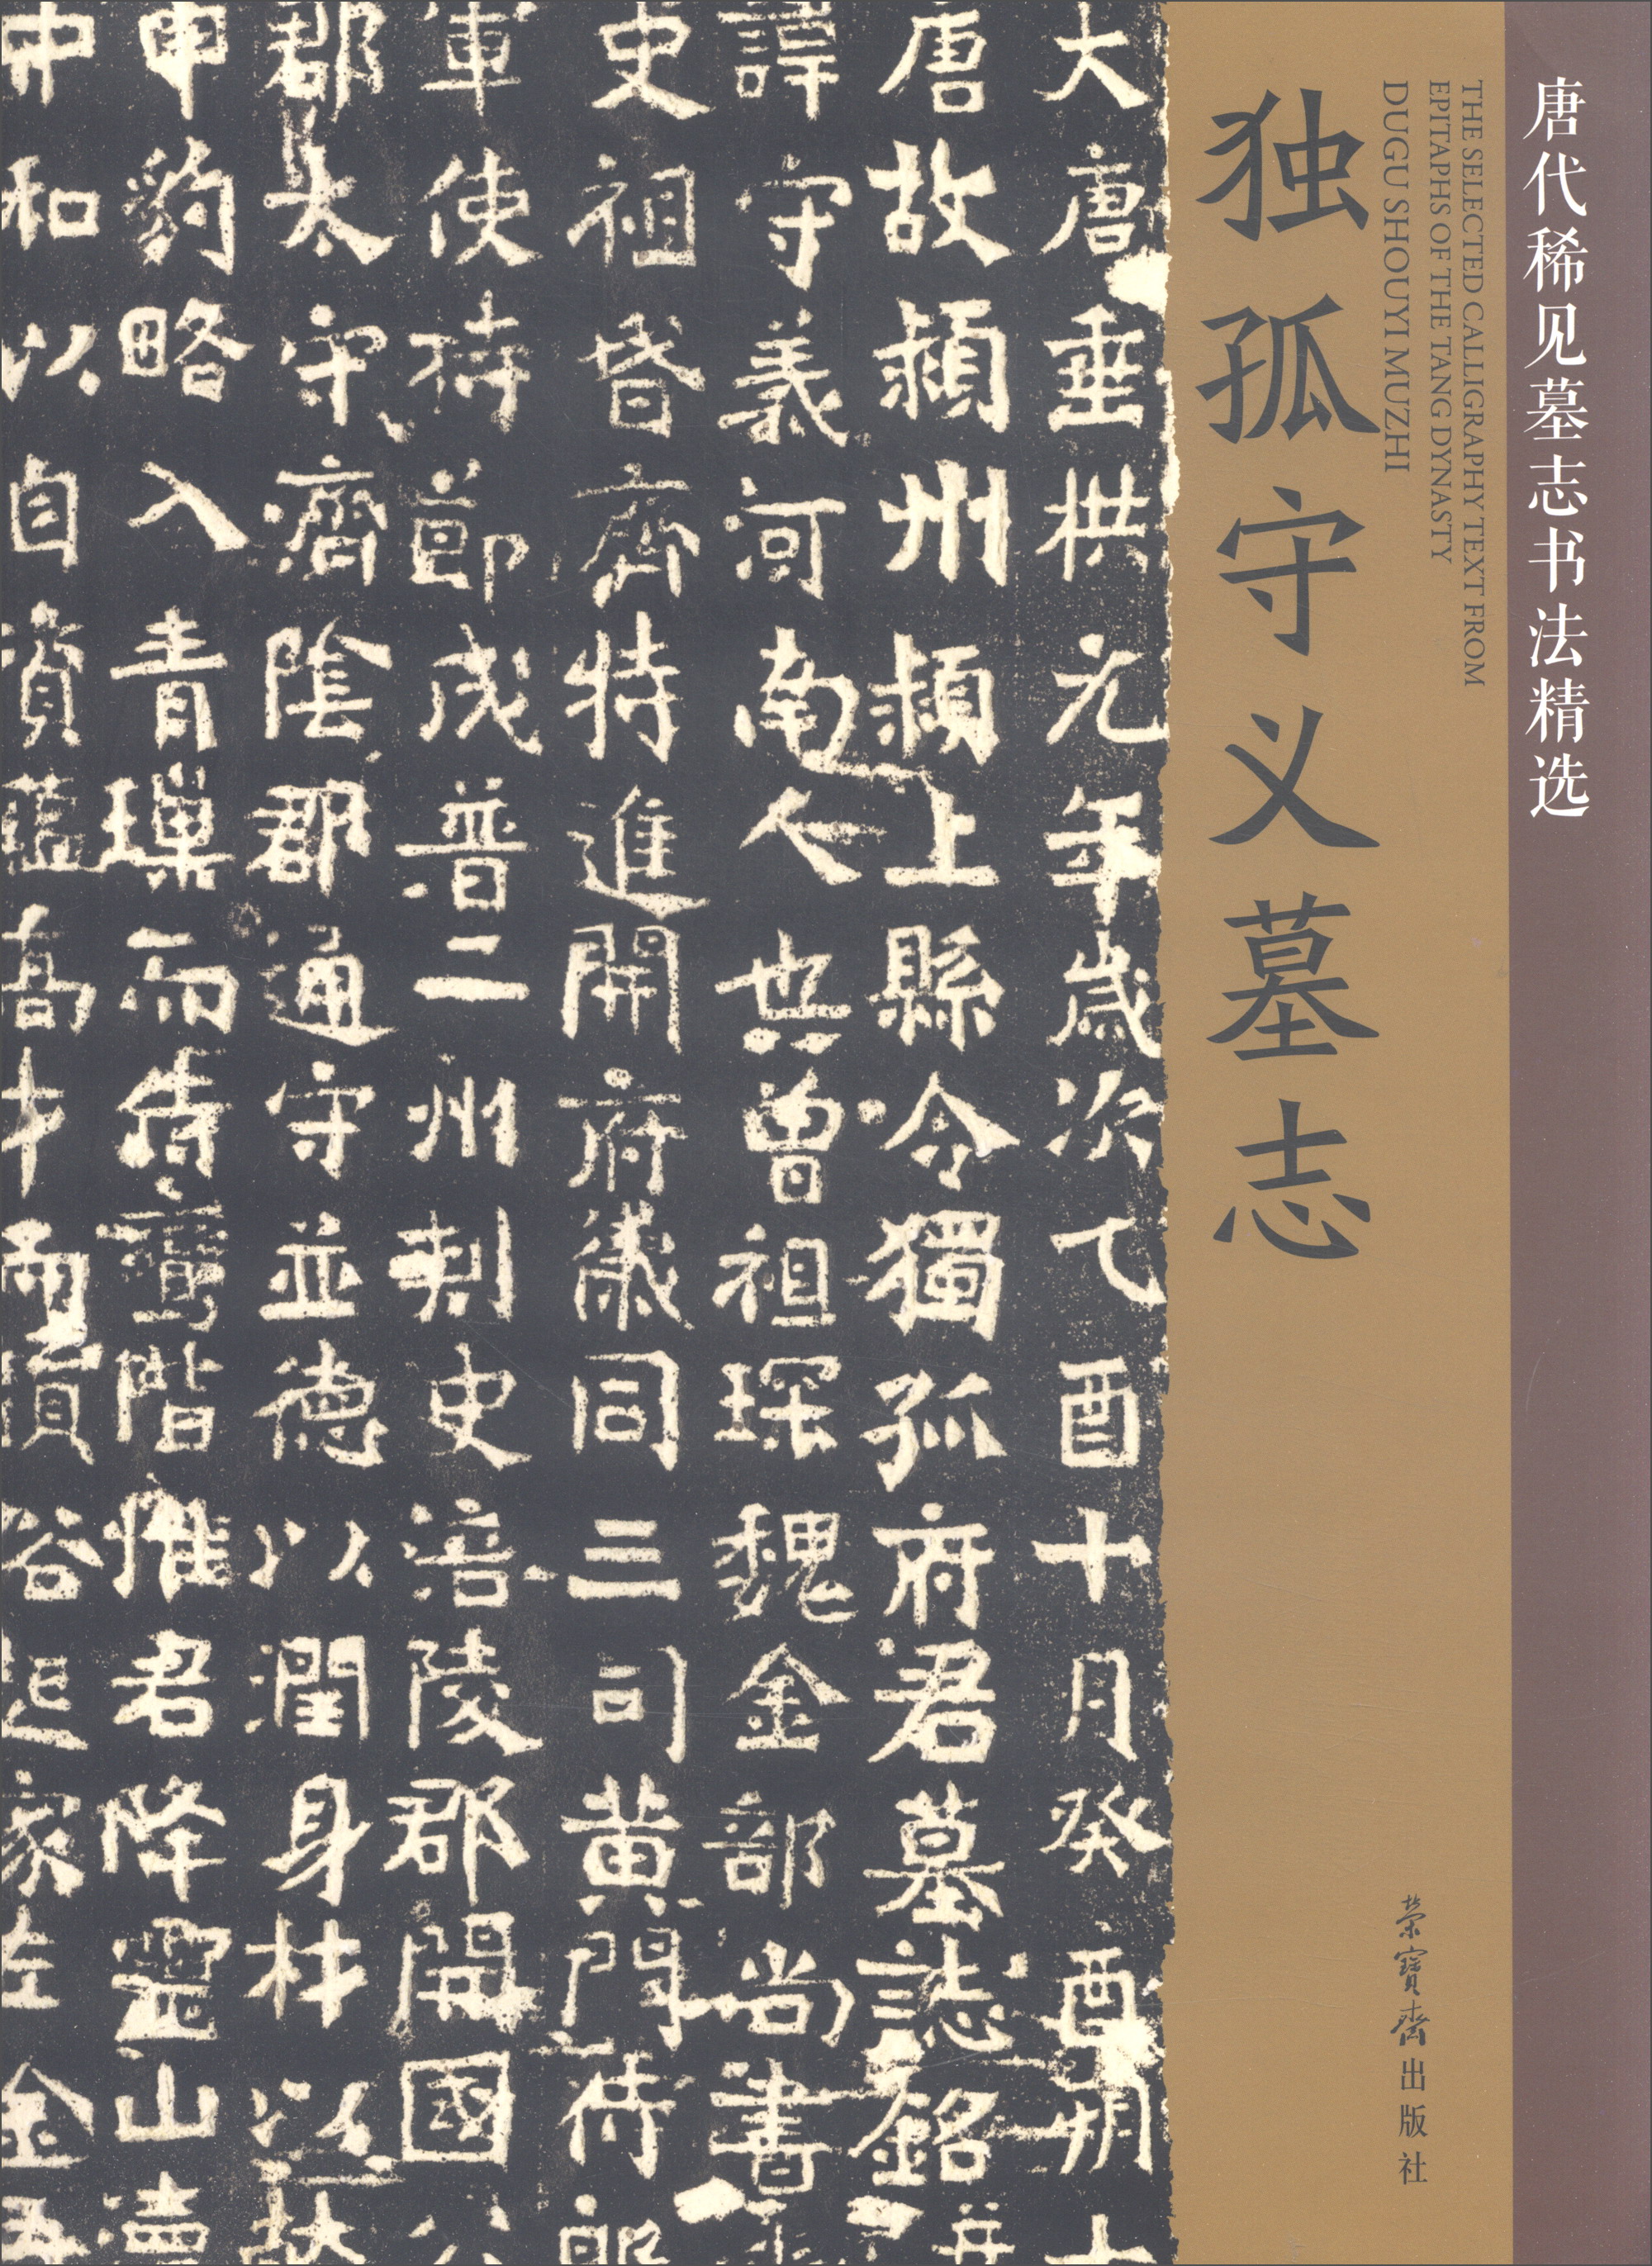 唐代稀见墓志书法精选
THE SELECTED CALLIGRAPHY TEXT FROM
EPITAPHS OF THE TANG DYNASTY
DUGU SHOUYI MUZHI
独孤守义墓志
荣寳斋出版社
大唐垂拱元年歳次乙酉十月癸酉朔十
唐故潁州潁上縣令獨孤府君墓誌銘并
諱守義河南人也曾祖琛魏金部尚書
史祖昝齊特進開府儀同三司黄門侍郎
軍使持節成普二州刺史涪陵郡開國公
郡太守濟陰郡通守並德以潤身材以
申豹略入青璅而侍鸞階惟君降靈山瀆
中和以自資蘊髙才而
谷起家左金吾